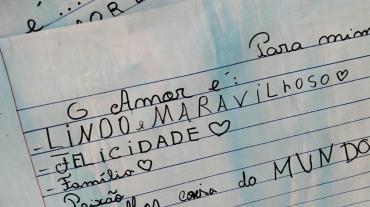 é...
Para mim
O Amor é:
- LINDO e MARAVILHOSO ♡
- FELICIDADE ♡
- Família ♡
Paixão
coisa do MUNDO